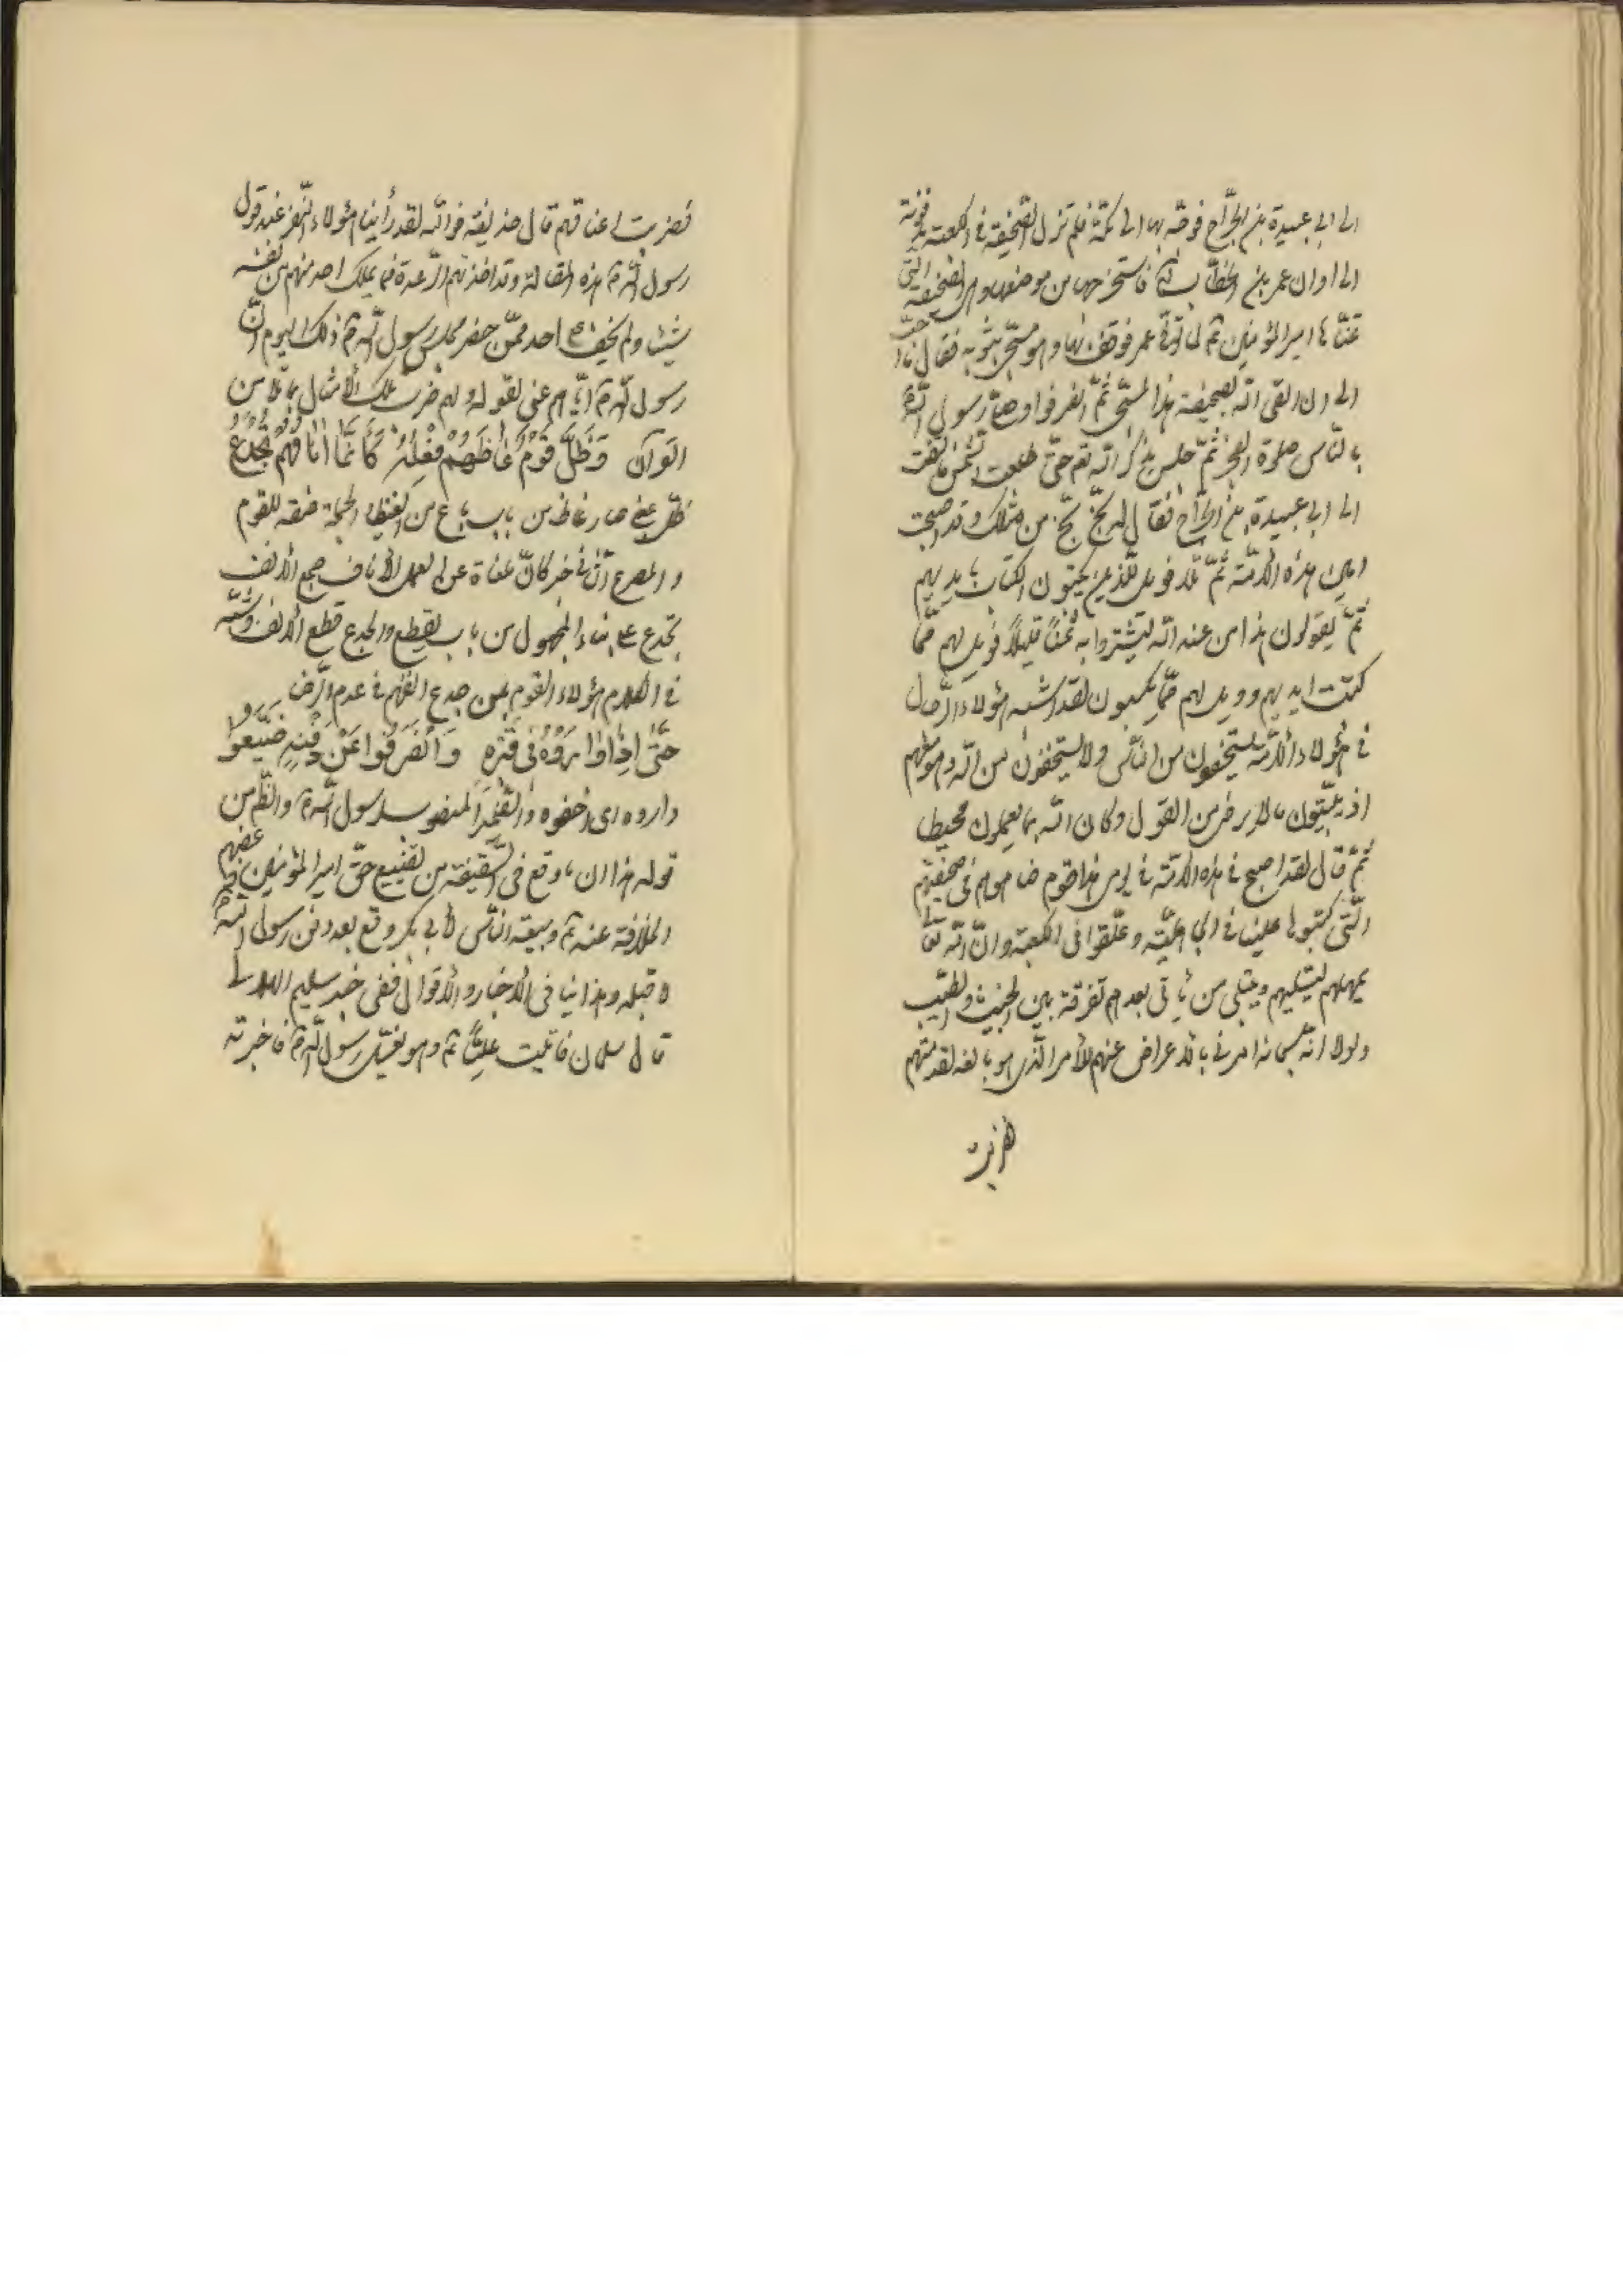 الى ابى عبيدة بن الجرّاح فوجّه بها الى مكّة فلم تزل الصّحيفة فى الكعبة مدفونة
الى اوان عمر بن الخطّاب فاستخرجها من موضعها وهى الصّحيفة الّتى
تمنّاها امير المؤمنين ع لما توفّى عمر فوقف بها وهو مسجّى بثوبه فقال ما احبّ
الى ان القى اللّه بصحيفة هذا المسجّى ثمّ انصرفوا وصلّى رسول اللّه ص
بالنّاس صلوة الفجر ثمّ جلس يذكر اللّه تع حتّى طلعت الشّمس فالتفت
الى ابى عبيدة بن الجرّاح فقال له بخّ بخّ من مثلك وقد اصبحت
امين هذه الامّة ثمّ تلا فويل للّذين يكتبون الكتاب بايديهم
ثمّ يقولون هذا من عند اللّه ليشتروا به ثمنًا قليلًا فويل لهم ممّا
كتبت ايديهم وويل لهم ممّا يكسبون لقد اشبه هؤلاء الرّجال
فى هؤلاء الامّة يستخفون من النّاس ولا يستخفون من اللّه وهو معهم
اذ يبيّتون ما لا يرضى من القول وكان اللّه بما يعملون محيطا
ثمّ قال لقد اصبح فى هذه الامّة فى يومى هذا قوم ضاهوهم فى صحيفتهم
الّتى كتبوها علينا فى الجاهليّة وعلّقوا فى الكعبة وانّ اللّه تعالى
يمهلهم ليبتليهم ويبتلى من يأتى بعدهم تفرقة بين الخبيث والطيّب
ولولا انّه سبحانه امرنى بالاعراض عنهم للأمر الّذى هو بالغه لقدمتهم
فضربت
فضربت اعناقهم قال حذيفة فواللّه لقد رأينا هؤلاء النّفر عند قول
رسول اللّه ص هذه المقالة وقد اخذتهم الرّعدة فما يملك احد منهم من نفسه
شيئا ولم يخف على احد ممّن حضر مجلس رسول اللّه ص ذلك اليوم انّ
رسول اللّه ص ايّاهم عنى بقوله ولهم ضرب تلك الأمثال بما تلا من
القرآن وَظَلَّ قَوْمٌ غَاظَهُمْ فِعْلُهُ كَأَنَّمَا انَافُهُمْ تُجْدَعُ
ظلّ بمعنى صار غاظ من باب باع من الغيظ والجملة صفة للقوم
والمصرع الثّانى خبر كانّ ملغاة عن العمل الأناف جمع الانف
تجدع على بناء المجهول من باب القطع والجدع قطع الانف وشبّه
فى الكلام هؤلاء القوم بمن جدع انفهم فى عدم الرّضا
حَتّى اِذَا وَارَوْهُ فى قَبْرِهِ وَانْصَرَفُوا عَنْ دَفْنِهِ ضَيَّعُوا
واروه اى اخفوه والضّمير المنصوب لرسول اللّه ص والظّاهر من
قوله هذا ان ما وقع فى السّقيفة من تضييع حقّ امير المؤمنين ع وغصبهم
الخلافة عنه ع وبيعة النّاس لأبى بكر وقع بعد دفن رسول اللّه ص
لا قبله وهذا ينافى الأخبار والأقوال ففى خبر سليم الهلالى
قال سلمان فاتيت عليًّا ع وهو يغسّل رسول اللّه ص فاخبرته